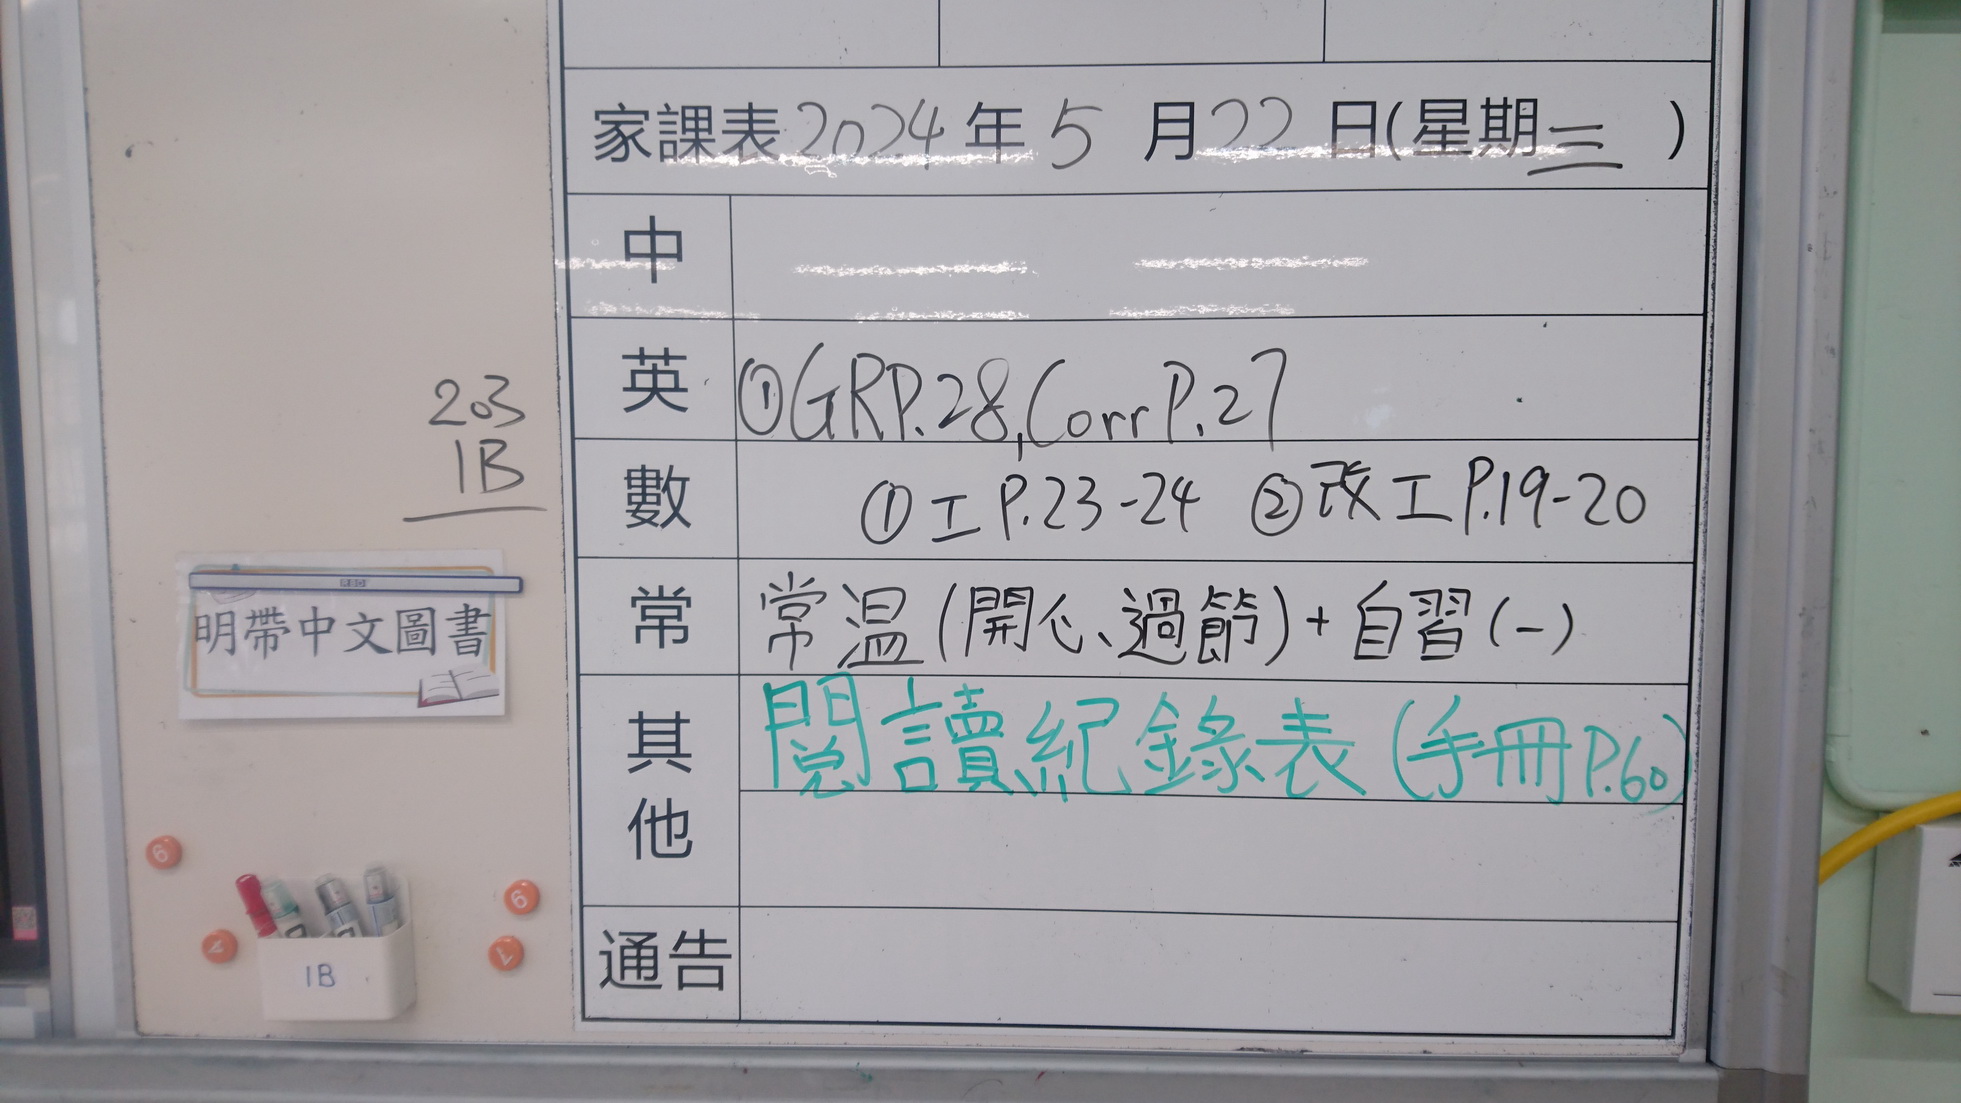 家課表2024年5月22日(星期三)
中
英 ①GRP.28,Corr P.27
數 ①工P.23-24 ②改工P.19-20
常 常溫(開心、過節)+自習(一)
其他 閱讀紀錄表(手冊P.60)
通告
203
1B
明帶中文圖書
1B